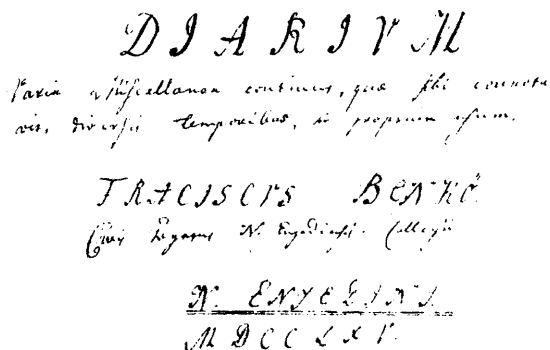 DIARIVM
Varia & Miscellanea continens, quæ sibi connota
vit, diversis temporibus, in proprium usum.
FRACISCVS BENKŐ.
Civis Togatus N. Enyediensis Collegii
N. ENYEDINI.
MDCCLXV.